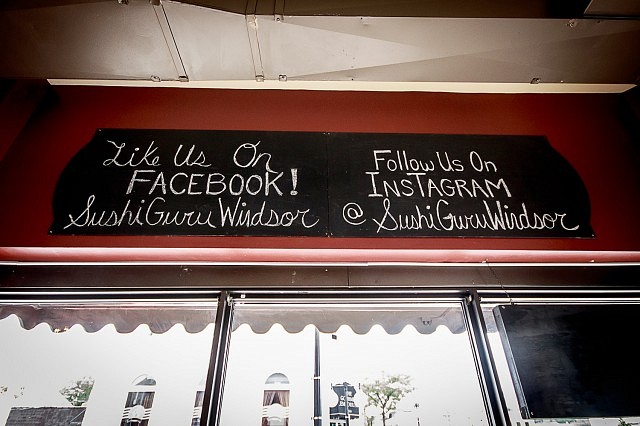 Like Us On
FACEBOOK!
SushiGuruWindsor
Follow Us On
INSTAGRAM
@SushiGuruWindsor